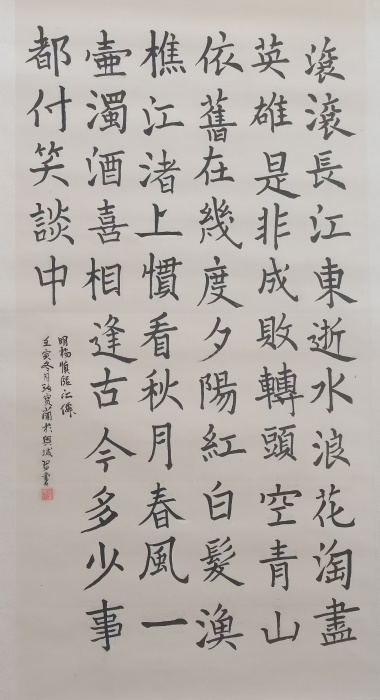 滾滾長江東逝水浪花淘盡
英雄是非成敗轉頭空青山
依舊在幾度夕陽紅白髮漁
樵江渚上慣看秋月春風一
壺濁酒喜相逢古今多少事
都付笑談中
明楊慎臨江僊
壬寅冬月於興城習書